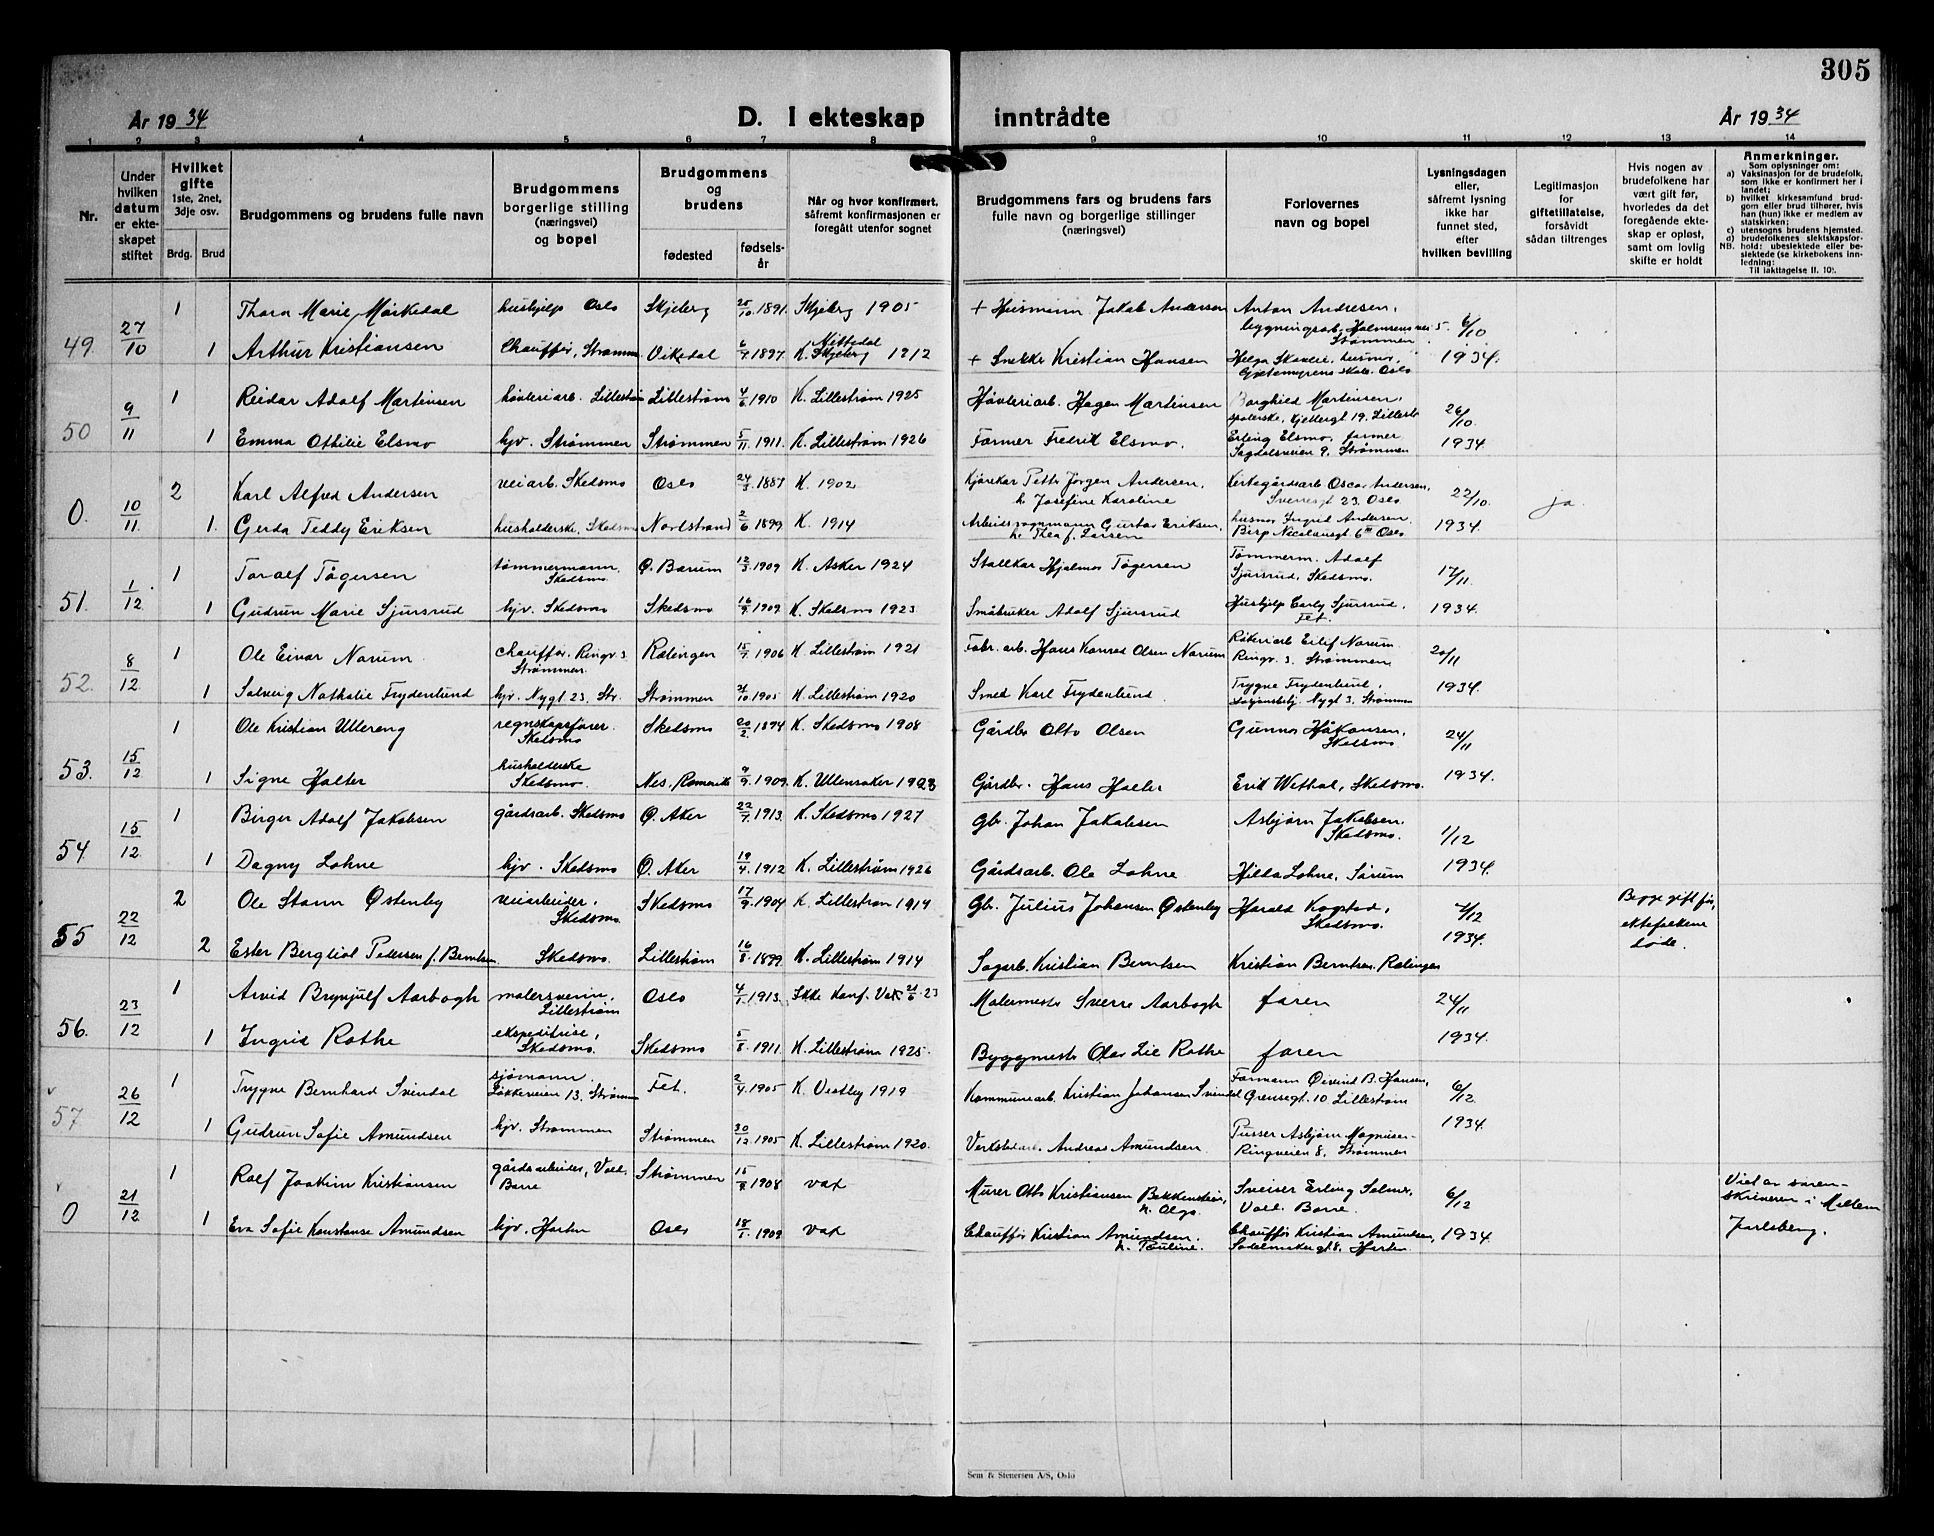 305
År 1934
D. I ekteskap inntrådte
År 1934
1 2 3 4 5 6 7 8 9 10 11 12 13 14
Nr.
Under hvilken datum er ekteskapet stiftet
Hvilket gifte 1ste, 2net, 3dje osv.
Brdg. Brud
Brudgommens og brudens fulle navn
Brudgommens borgerlige stilling (næringsvei) og bopel
Brudgommens og brudens
fødested
fødselsår
Når og hvor konfirmert, såfremt konfirmasjonen er foregått utenfor sognet
Brudgommens fars og brudens fars fulle navn og borgerlige stillinger (næringsvei)
Forlovernes navn og bopel
Lysningsdagen eller, såfremt lysning ikke har funnet sted, efter hvilken bevilling
Legitimasjon for giftetillatelse, forsåvidt sådan tiltrenges
Hvis nogen av brudefolkene har vært gift før, hvorledes da det foregående ekteskap er opløst, samt om lovlig skifte er holdt
Anmerkninger.
Som oplysninger om:
a) Vaksinasjon for de brudefolk, som ikke er konfirmert her i landet;
b) hvilket kirkesamfund brudgom eller brud tilhører, hvis han (hun) ikke er medlem av statskirken;
c) utensogns brudens hjemsted.
d) brudefolkenes slektskapsforhold: ubeslektede eller beslektede (se kirkebokens innledning:
NB.
Til iakttagelse II. 10).
1 Thora Marie Mørkedal hushjelp Oslo Skjeberg 25/10 1891. Skjeberg 1905 + Husmann Jakob Andersen Anton Andresen, bygningsarb. Holmsensvei 5. Strømmen 6/10
49. 27/10 1 Arthur Kristiansen Chauffør, Strømmen Vikedal 1897 K. Skjeberg Nittedal 1912 + Snekker Kristian Hansen Helga Skaulie, husmor, Oslo 1934.
1 Reidar Adolf Martinsen høvleriarb. Lillestrøm Lillestrøm 4/6 1910 K. Lillestrøm 1925 Høvleriarb. Hagen Martinsen Borghild Martinsen, Kjellergt 19. Lillestr. 26/10
50 9/11 1 Emma Othilie Elsmo hjv. Strømmen Strømmen 5/11 1911. K. Lillestrøm 1926 Former Fredrik Elsmo. Erling Elsmo, former Sagdalsveien 9. Strømmen 1934
2 Karl Alfred Andersen veiarb. Skedsmo Oslo 1887 K. 1902 Kjørekar Petter Jørgen Andersen, h. Josefine Karoline Oscar Andersen, Sveresgt 23 Oslo 22/10 ja.
0. 10/11 1. Gerda Teddy Eriksen husholderske, Skedsmo Nordstrand 2/6 1899 K. 1914 Gustav Eriksen, h. Thea f. Larsen husmor Ingrid Andersen. Nicolausgt 6 III Oslo 1934.
1 Toralf Tøgersen tømmermann, Skedsmo Ø. Bærum 12/3 1909 K. Asker 1924 Stallkar Hjalmar Tøgersen Tømmerm. Adolf Sjursrud, Skedsmo. 17/11.
51. 1/12 1 Gudrun Marie Sjursrud hjv. Skedsmo Skedsmo 16/9 1909. K. Skedsmo 1923 Småbruker Adolf Sjursrud Hushjelp Carly Sjursrud, Fet. 1934.
1 Ole Einar Narum. Chauffør. Ringv. 3. Strømmen Rælingen 15/7 1906 K. Lillestrøm 1921 Fabr. arb. Hans Konrad Olsen Narum Eilif Narum Ringv. 3. Strømmen 20/11
52. 8/12 1 Solveig Nathalie Frydenlund hjv. Nygt. 23, Str. Strømmen 1905 K. Lillestrøm 1920 Smed Karl Frydenlund. Trygve Frydenlund, Nygt 3. Strømmen 1934.
1 Ole Kristian Ullereng regnskapsfører Skedsmo Skedsmo 20/2 1894 K. Skedsmo 1908 Gårdbr. Otto Olsen Gunnar Håkonsen, Skedsmo 24/11
53. 15/12 1 Signe Holter husholderske Skedsmo. Nes, Romerike 9/9 1909. K. Ullensaker 1923 Gårdbr. Hans Holter Erik Wethal, Skedsmo. 1934.
1 Birger Adolf Jakobsen gårdsarb. Skedsmo Ø. Aker 22/7 1913. K. Skedsmo 1927 Gbr. Johan Jakobsen Asbjørn Jakobsen, Skedsmo. 1/12
54. 15/12. 1 Dagny Lohne hjv. Skedsmo Ø. Aker 19/4 1912 K. Lillestrøm 1926 Gårdsarb. Ole Lohne Hilda Lohne, Sørum 1934.
2 Ole Stann Østenby veiarbeider, Skedsmo. Skedsmo 17/9 1904 K. Lillestrøm 1914 Gbr. Julius Johansen Østenby Harald Kogstad, Skedsmo. 7/12 Begge gift før, ektefellene døde.
55 22/12 2 Ester Bergliot Pedersen f. Berntsen Skedsmo. Lillestrøm 16/8 1899 K. Lillestrøm 1914 Sagarb. Kristian Berntsen Kristian Berntsen. Rælingen 1934.
1 Arvid Brynjulf Aarbogh malersvenn, Lillestrøm Oslo 4/1 1913. Ikke konf. Vak. 23 Malermester Sverre Aarbogh faren 24/11
56. 23/12 1 Ingrid Rothe ekspeditrise, Skedsmo. Skedsmo 5/8 1911. K. Lillestrøm 1925. Byggmester Olav Lie Rothe faren 1934.
1 Trygve Bernhard Svindal sjømann Løkkeveien 13. Strømmen Fet. 1905 K. Vestby 1919 Kommunearb. Kristian Johansen Svindal Formann Øivind B. Hansen, Grensegt. 10 Lillestrøm 6/12
57 26/12 1 Gudrun Sofie Amundsen hjv. Strømmen Strømmen 30/12 1905 K. Lillestrøm 1920. Verkstedarb. Andreas Amundsen Pusser Asbjørn Magnusen Ringveien 8. Strømmen 1934.
1 Rolf Joakim Kristiansen gårdsarbeider, Borre Strømmen 1908 vax Murer Otto Kristiansen Bakkenstein, h. Olga. Sveiser Erling Solner, Borre. 6/12 Viet av sorenskriveren i Mellem Jarlsberg.
0 21/12 1 Eva Sofie Konstanse Amundsen hjv. Horten Oslo 18/1 1909 vax Chauffør Kristian Amundsen. h. Pauline. Chauffør Kristian Amundsen, Horten 1934.
Sem & Stenersen A/S, Oslo